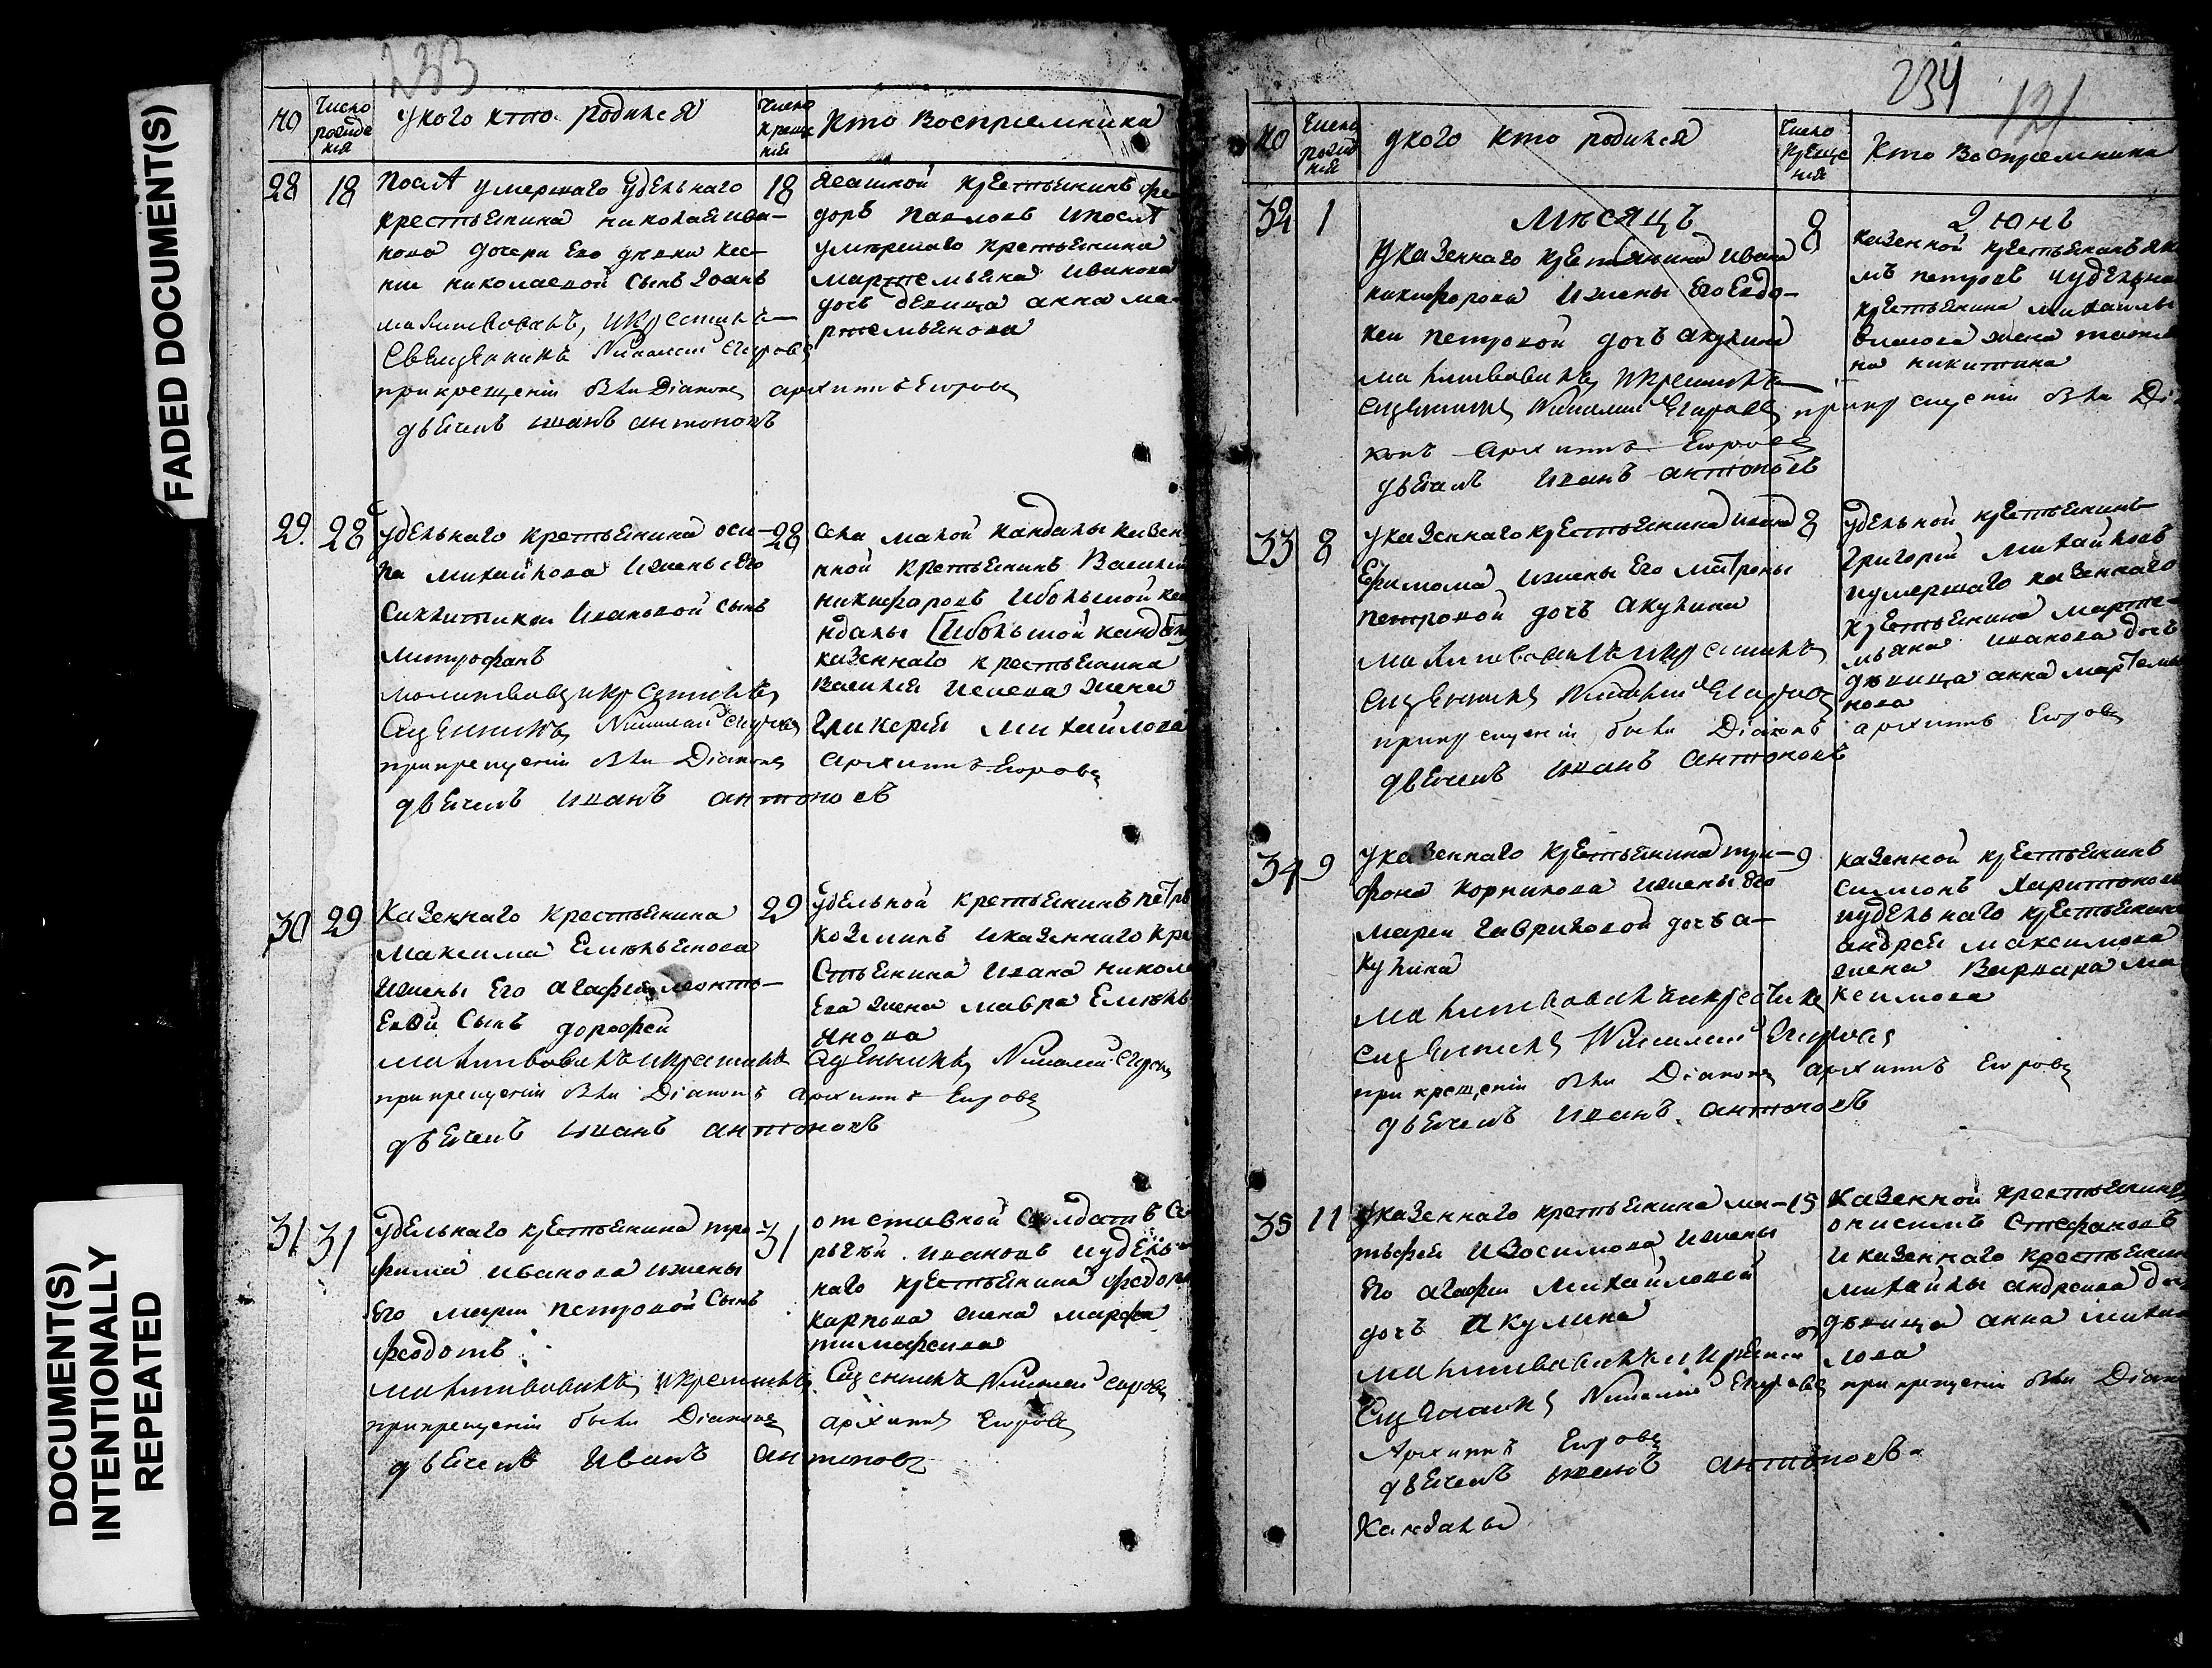 FADED DOCUMENT(S)
DOCUMENT(S)
INTENTIONALLY
REPEATED
233
Число рожде нія
У кого кто родился
Число креще нія
Кто Воспріемники
28 18
послѣ умершаго удѣльнаго
крестьянина николая ива-
нова дочери Его дѣвки
николаевой сынъ Іоанъ
молитвовалъ, и крестилъ
Священникъ Николай Егоровъ
при крещеніи были Діаконъ архипъ Егоровъ
дьячекъ иванъ антоновъ
18
ясашной крестьянинъ фе
доръ павловъ и послѣ
умершаго крестьянина
мартемьяна иванова
дочь девица анна ма-
ртемьянова
29. 28
удельнаго крестьянина оси-
па михайлова и жены его
Синклитикеи Ивановой сынъ
митрофанъ
молитвовалъ и крестилъ
Священникъ Николай Егоровъ
при крещеніи были Діаконъ архипъ Егоровъ
дьячекъ иванъ антоновъ
28
села малой кандалы казен
ной крестьянинъ Василей
никифоровъ и большой ка
ндалы [и большой кандалы
казеннаго крестьянина
Василья жена
Гликерія михайлова
30 29
Казеннаго крестьянина
максима Емельянова
и жены Его агафьи леонть-
евой сынъ дорофей
молитвовалъ и крестилъ Священникъ Николай Егоровъ
при крещеніи были Діаконъ архипъ Егоровъ
дьячекъ иванъ антоновъ
29
удельной крестьянинъ петръ
козминъ и казеннаго кре
стьянина ивана никола
ева жена мавра Емель
янова
31 31
удельнаго крестьянина тро-
фима иванова и жены
Его марьи петровой сынъ
федотъ
молитвовалъ и крестилъ Священникъ Николай Егоровъ
при крещеніи были Діаконъ архипъ Егоровъ
дьячекъ Иванъ антоновъ
31
отставной солдатъ Се
ргей ивановъ и удель
наго крестьянина федора
карпова жена марфа
тимофеева
234 121
Число рожде нія
у кого кто родился
Число креще нія
Кто Воспріемники
мѣсяцъ Іюнь
32 1
У казеннаго крестьянина ивана
никифорова и жены Его Евдо-
кеи петровой дочь акулина
молитвовалъ и крестилъ
священникъ Николай Егоровъ при крещеніи были Діа
конъ архипъ Егоровъ
дьячекъ иванъ антоновъ
8
казенной крестьянинъ
петровъ и удельна
крестьянина михайлы
жена
на никитина
33 8
У казеннаго крестьянина ивана
Ефимова и жены Его матроны
петровой дочь акулина
молитвовалъ и крестилъ
священникъ Николай Егоровъ
при крещеніи были Діаконъ архипъ Егоровъ
дьячекъ иванъ антоновъ
8
удельной крестьянинъ
Григорій михайловъ
и умершаго казеннаго
крестьянина марте-
мьяна иванова дочь
девица анна мартемья
нова
34 9
У казеннаго крестьянина три-
фона корнилова и жены Его
марьи гавриловой дочь а-
кулина
молитвовалъ и крестилъ
священникъ Николай Егоровъ
при крещеніи были Діаконъ архипъ Егоровъ
дьячекъ иванъ антоновъ
9
казенной крестьянинъ
симіонъ харитоновъ
и удельнаго крестьянина
андрея максимова
жена Варвара ма
ксимова
35 11
У казеннаго крестьянина ма-
тьфея Изосимова и жены
Его агафьи михайловой
дочь акулина
молитвовалъ и крестилъ
Священникъ Николай Егоровъ при крещеніи были Діаконъ
Архипъ Егоровъ
дьячекъ иванъ антоновъ
Кандалы
15
казенной крестьянинъ
онисимъ стефановъ
и казеннаго крестьянина
михайлы андреева до
девица анна михаи
лова